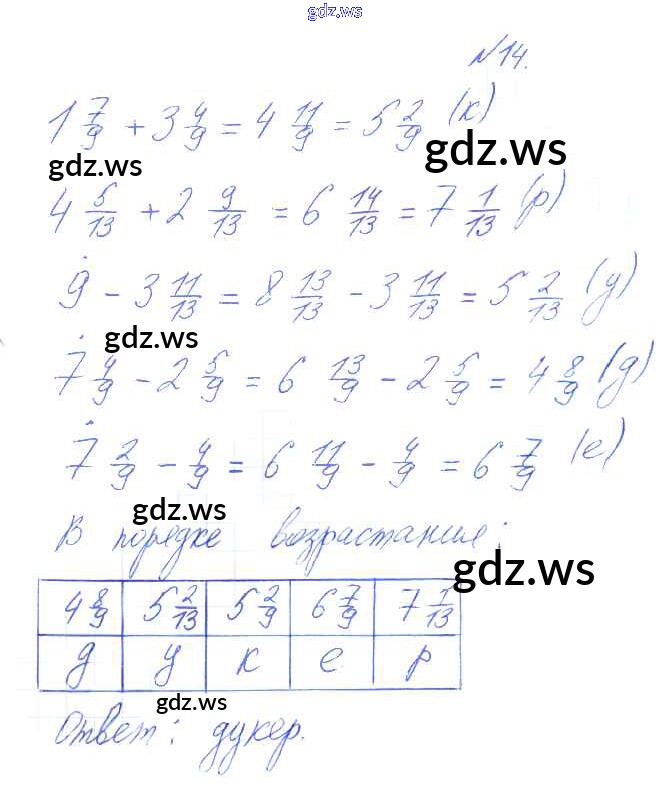 gdz.ws
№14.
1 7/9 + 3 4/9 = 4 11/9 = 5 2/9 (к)
gdz.ws
gdz.ws
4 5/13 + 2 9/13 = 6 14/13 = 7 1/13 (р)
9 - 3 11/13 = 8 13/13 - 3 11/13 = 5 2/13 (у)
gdz.ws
7 4/9 - 2 5/9 = 6 13/9 - 2 5/9 = 4 8/9 (д)
7 2/9 - 4/9 = 6 11/9 - 4/9 = 6 7/9 (е)
gdz.ws
В порядке возрастания:
gdz.ws
4 8/9 5 2/13 5 2/9 6 7/9 7 1/13
д у к е р
gdz.ws
Ответ: дукер.